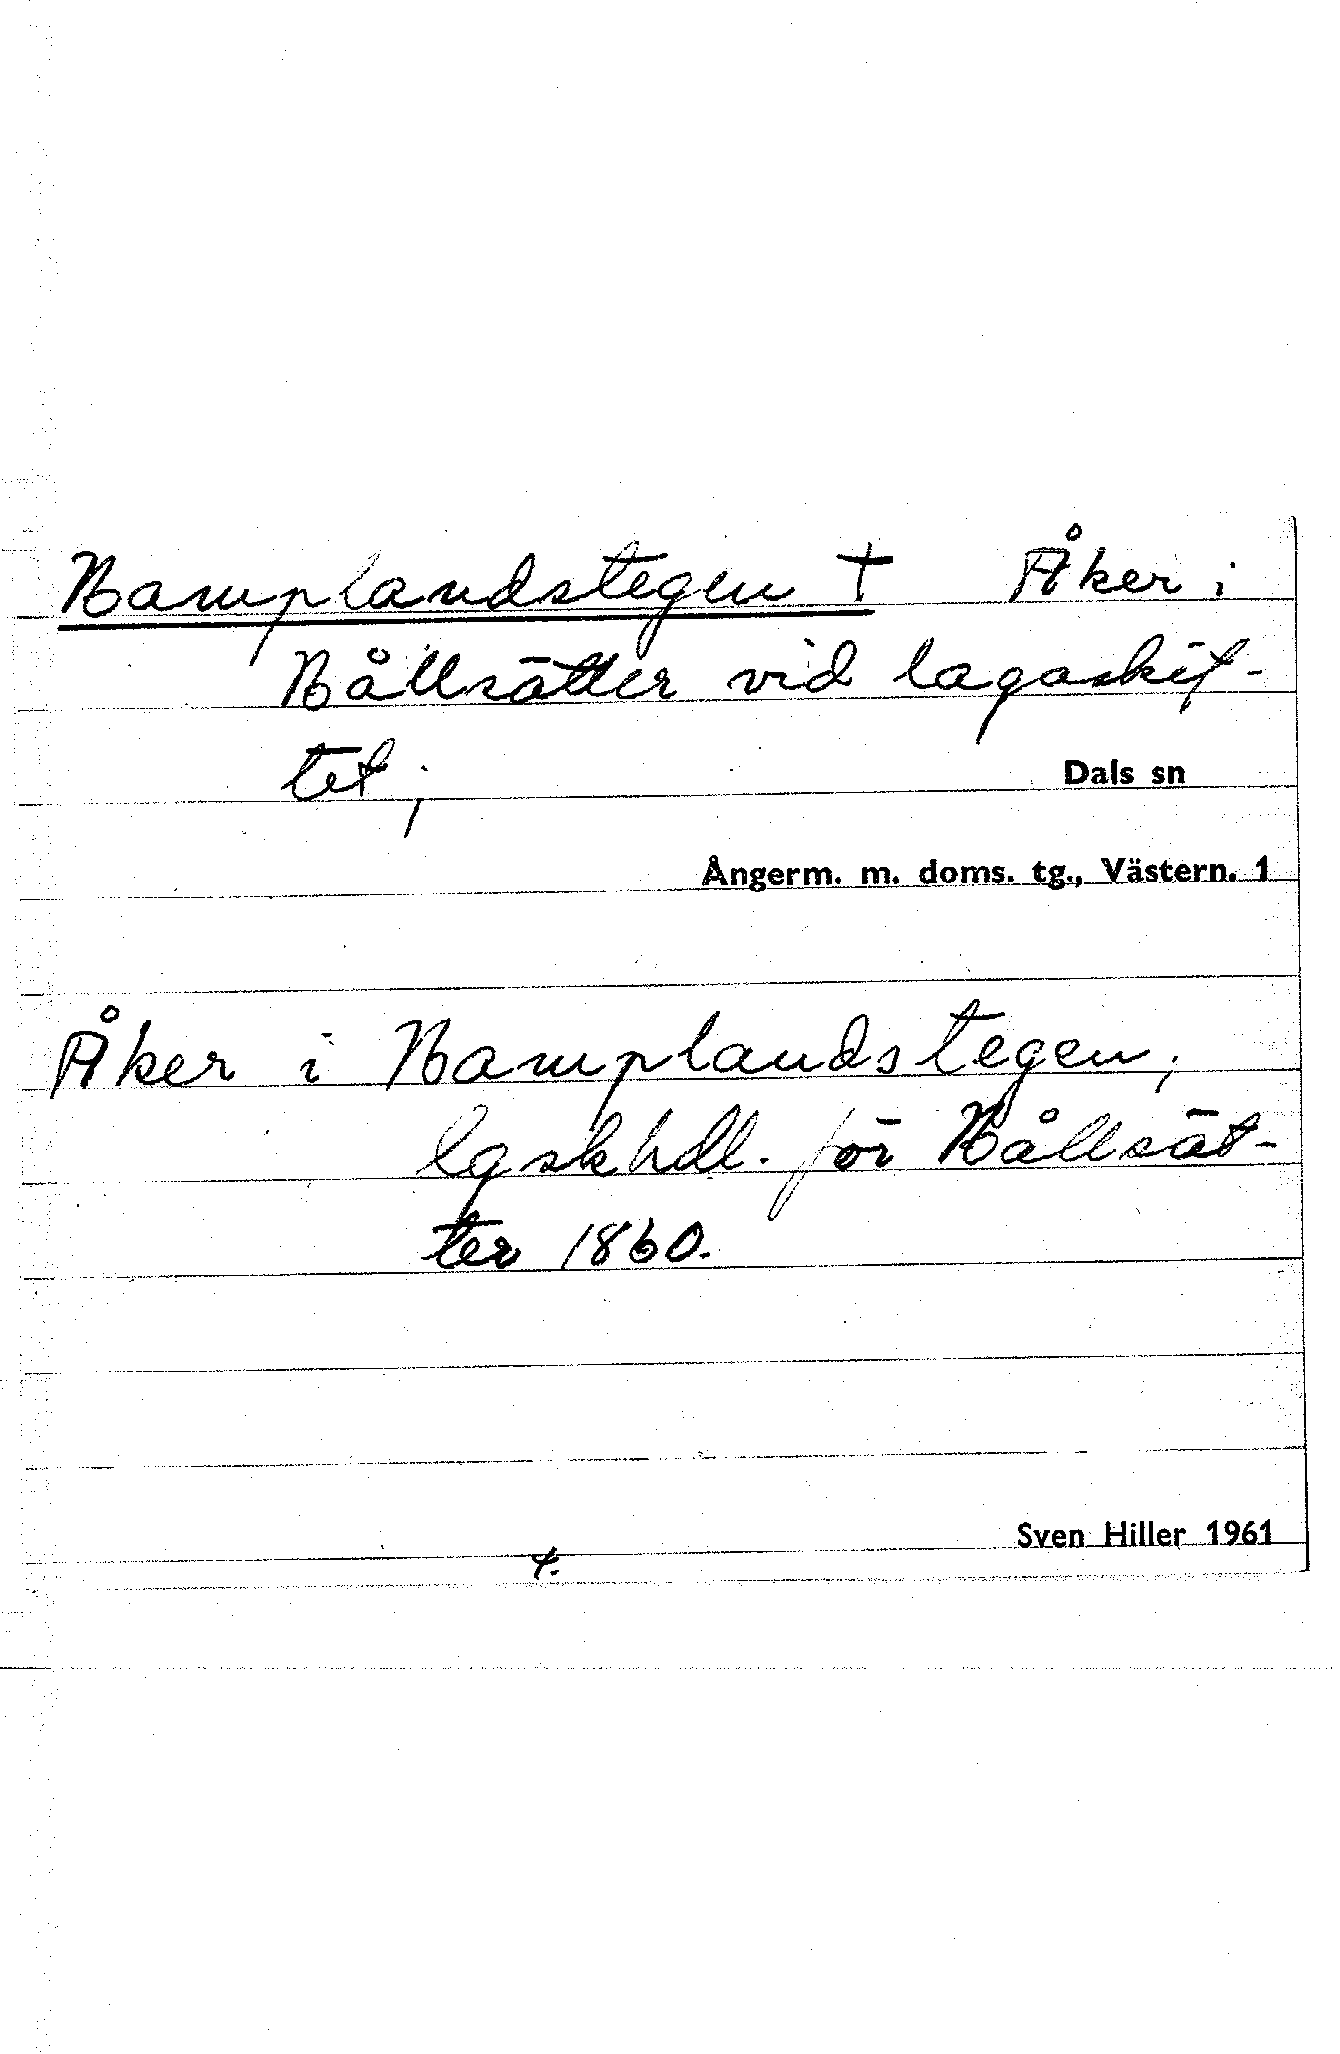 Bamplandstegen † Åker i
Bållsätter vid lagaskif-
tet;
Dals sn
Ångerm. m. doms. tg., Västern. 1
Åker i Bamplandstegen,
lgskhdl. för Bållsät-
ter 1860.
Sven Hiller 1961